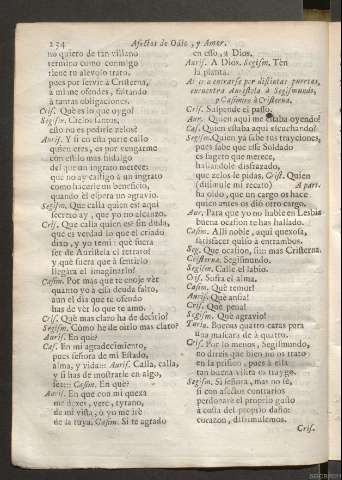 234 Afectos de Odio, y Amor.
no quiero de tan villano
termino como conmigo
tiene tu alevoso trato,
pues por servir à Cristerna,
à mi me ofendes, faltando
à tantas obligaciones.
Crif. Què es lo que oygo!
Segism. Cielos santos,
esto no es pedirle zelos?
Auris. Y si en esta parte callo
quien eres, es por vengarme
con estilo mas hidalgo
del que un ingrato merece:
que no ay castigo à un ingrato
como hacerle un beneficio,
quando èl espera un agravio.
Segism. Que calla quien es! aqui
secreto ay, que yo no alcanzo.
Crif. Que calla quien es! sin duda,
que es verdad lo que el criado
dixo, y yo temì: què fuera
ser de Auristela el retrato!
y què fuera que à sentirlo
llegara el imaginarlo!
Casim. Por mas que te enoje vèr
quanto yo à essa deuda falto,
aun el dia que te ofendo
has de vèr lo que te amo.
Crif. Què mas claro ha de decirlo?
Segism. Còmo he de oirlo mas claro?
Auris. En què?
Cas. En mi agradecimiento,
pues señora de mi Estado,
alma, y vida:: Auris. Calla, calla,
y si has de mostrarle en algo,
sea:: Casim. En què?
Auris. En que con mi quexa
me dexes, vete, tyrano,
de mi vista, ò yo me irè
de la tuya. Casim. Si te agrado
en esso, à Dios.
Auris. A Dios. Segism. Tèn
la planta.
Al irse à entrarse por distintas puertas,
encuentra Auristela à Segismundo,
y Casimiro à Cristerna.
Crif. Suspende el passo.
Aur. Quien aqui me estaba oyendo!
Cas. Quien estaba aqui escuchando!
Segism. Quien yà sabe tus trayciones,
pues sabe que esse Soldado
es sugeto que merece,
hallandole disfrazado,
que zelos le pidas. Crist. Quien
(dissimule mi recato) A part.
ha oìdo, que un cargo os hace
quien antes os diò otro cargo.
Aur. Para que yo no hable en Lesbia
buena ocasion te has hallado.
Casim. Alli noble, aqui quexosa,
satisfacer quiso à entrambos.
Seg. Que ocasion, sin mas Cristerna.
Cristerna. Segismundo.
Segism. Calle el labio.
Crif. Sufra el alma.
Casim. Què temor!
Auris. Què ansia!
Crif. Què pena!
Segism. Què agravio!
Turin. Buenas quatro caras para
una mascara de à quatro.
Crif. Por lo menos, Segismundo,
no direis que bien no os trato
en la prision, pues à ella
tan buena visita os traygo.
Segism. Si señora, mas no sè,
si con afectos contrarios
perdonarè el proprio gusto
à costa del proprio daño:
corazon, dissimulemos.
Crif.